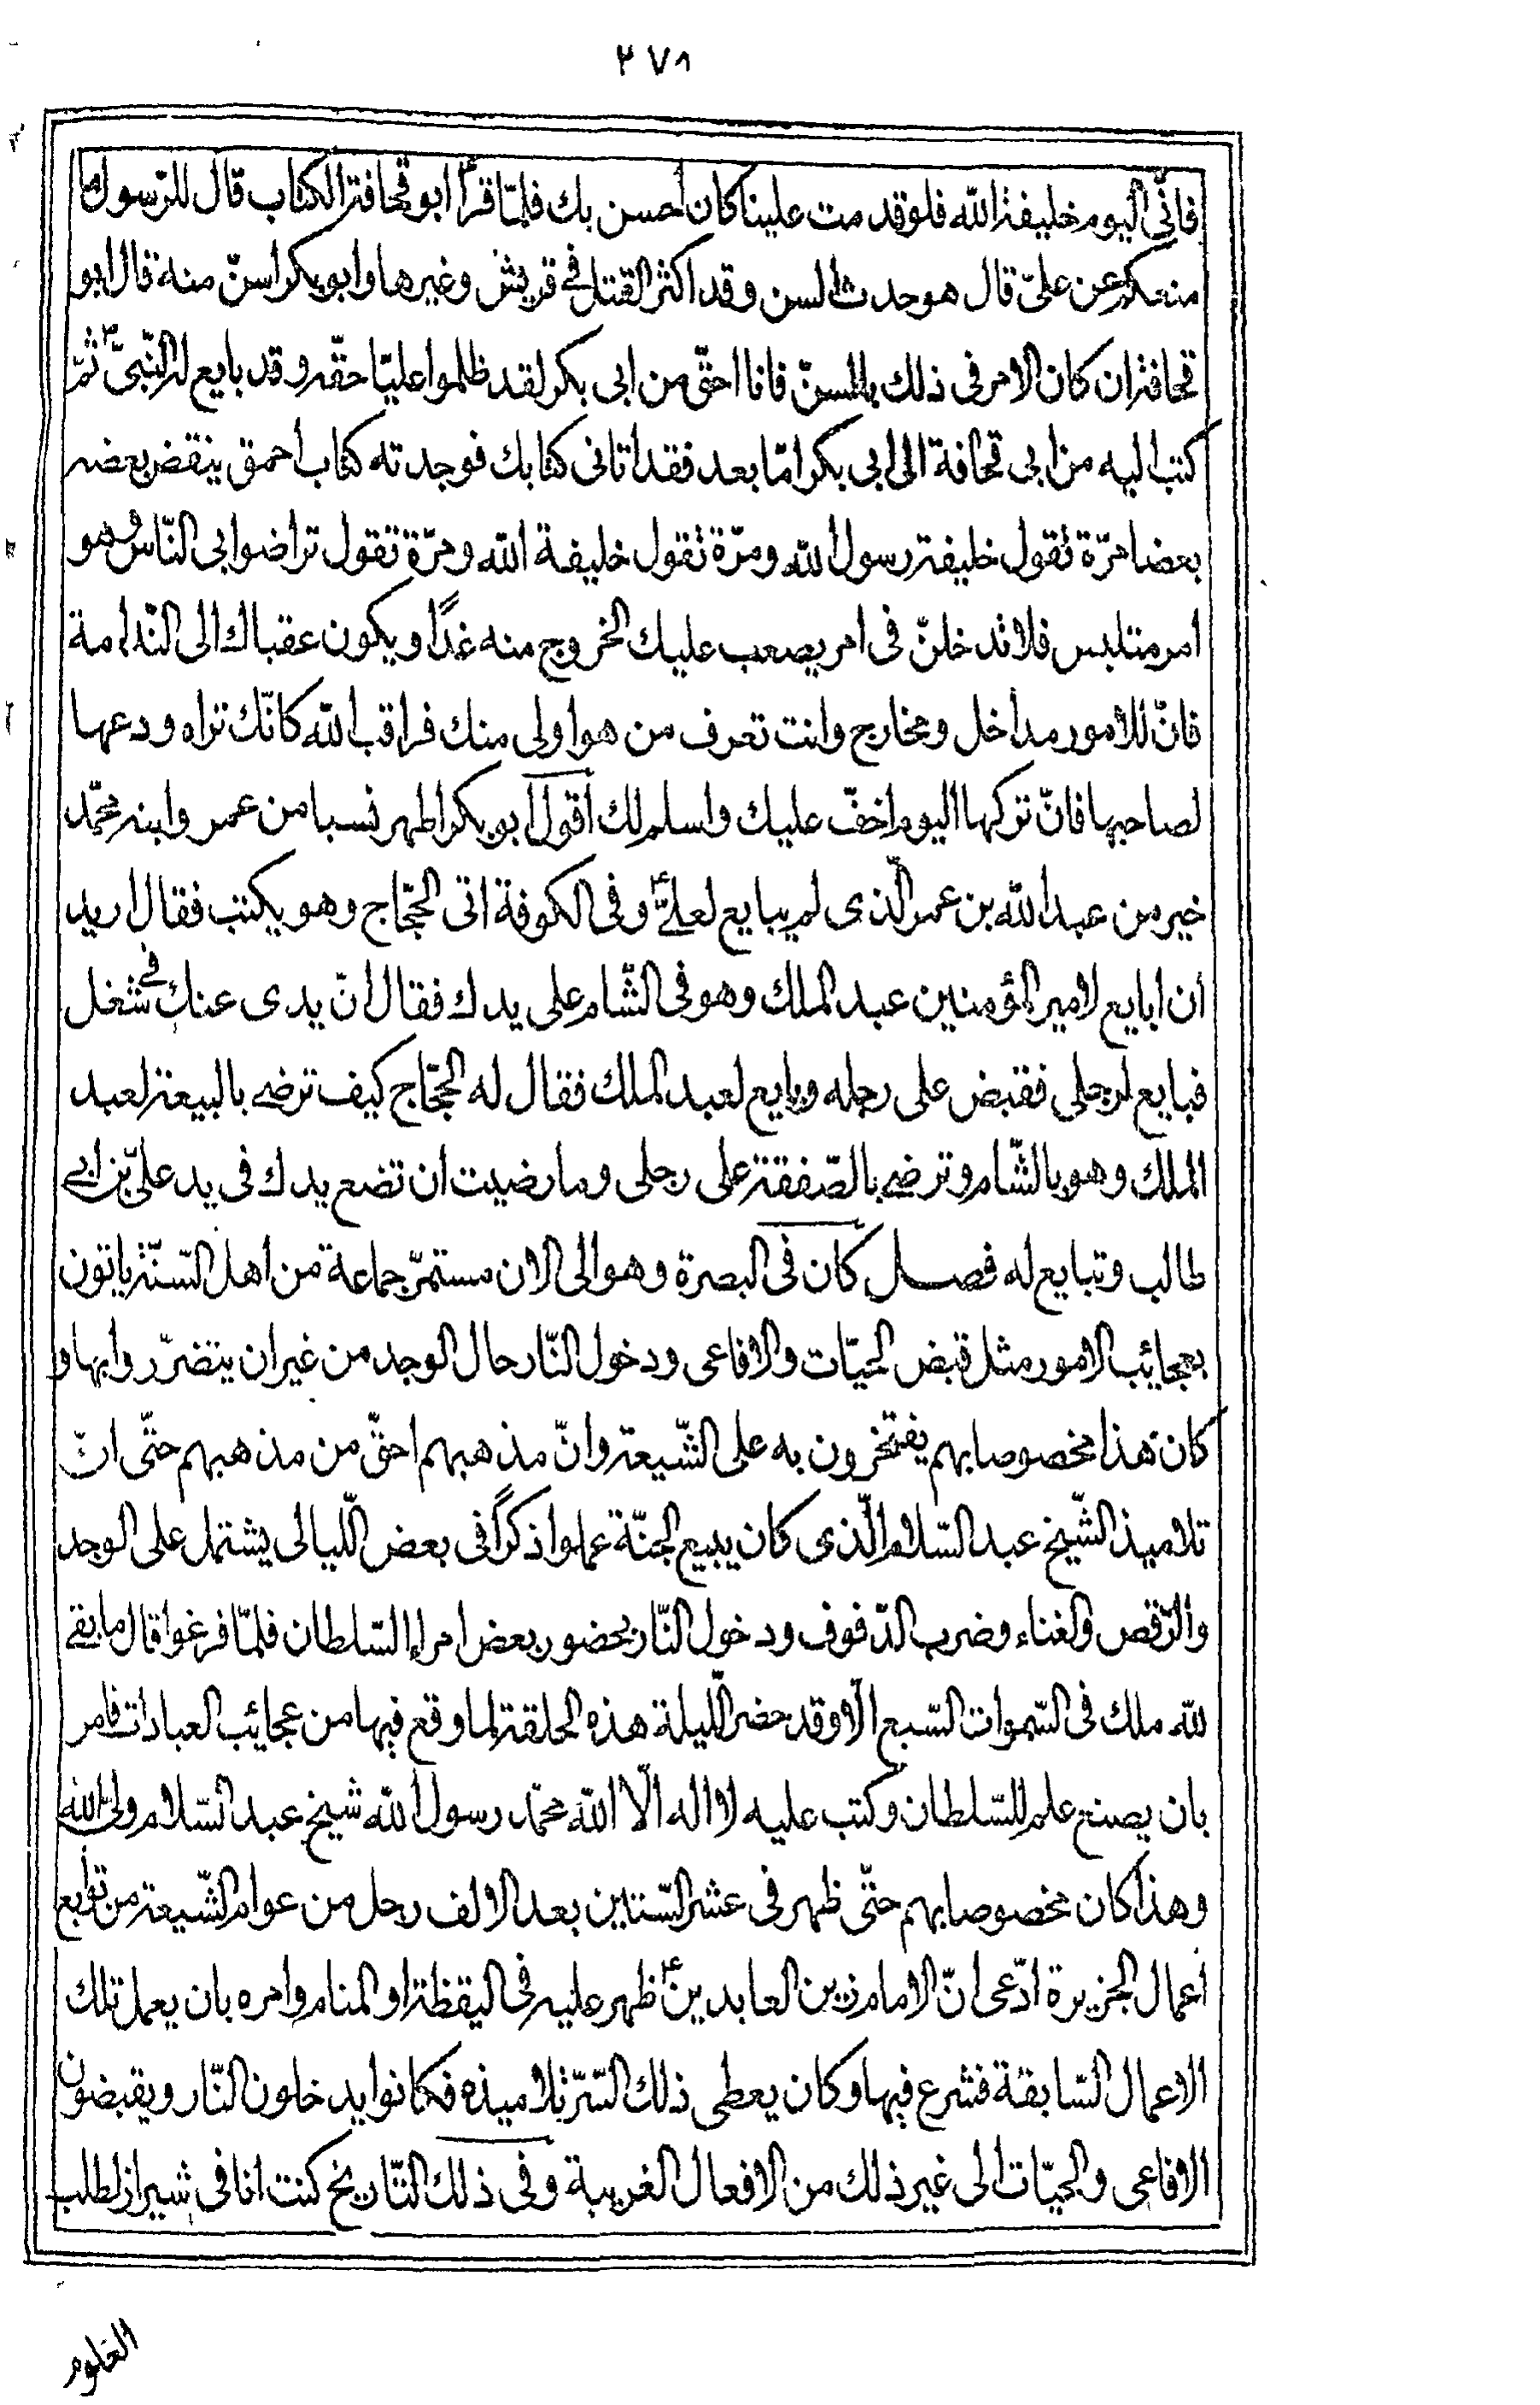 ٢٧٨
فانّى اليوم خليفة الله فلو قدمت علينا كان أحسن بك فلمّا قرأ ابو قحافة الكتاب قال للرّسول ما
منعكم عن علىّ قال هو حدث السن وقد اكثر القتل فى قريش وغيرها وابو بكر اسنّ منه قال ابو
قحافة ان كان الامر فى ذلك بالسنّ فانا احقّ من ابى بكر لقد ظلموا عليّا حقّه وقد بايع له النّبىّ ص ثمّ
كتب اليه من ابى قحافة الى ابى بكر امّا بعد فقد اتانى كتابك فوجدته كتاب احمق ينقض بعضه
بعضا مرّة تقول خليفة رسول الله ومرّة تقول خليفة الله ومرّة تقول تراضوا بى النّاس وهو
امر متلبس فلا تدخلنّ فى امر يصعب عليك الخروج منه غدًا ويكون عقباك الى النّدامة
فانّ للامور مداخل ومخارج وانت تعرف من هو اولى منك فراقب الله كانّك تراه ودعها
لصاحبها فانّ تركها اليوم اخفّ عليك واسلم لك اقول ابو بكر اطهر نسبا من عمر وابنه محمّد
خير من عبد الله بن عمر الّذى لم يبايع لعلىّ ع وفى الكوفة اتى الحجّاج وهو يكتب فقال اريد
أن ابايع لامير المؤمنين عبد الملك وهو فى الشّام على يدك فقال انّ يدى عنك فى شغل
فبايع لرجلى فقبض على رجله وبايع لعبد الملك فقال له الحجّاج كيف ترضى بالبيعة لعبد
الملك وهو بالشّام وترضى بالصّفقة على رجلى وما رضيت ان تضع يدك فى يد علىّ بن ابى
طالب وتبايع له فصــل كان فى البصرة وهو الى الان مستمرّ جماعة من اهل السّنّة ياتون
بعجائب الامور مثل قبض الحيّات والافاعى ودخول النّار حال الوجد من غير ان يتضرّروا بها و
كان هذا مخصوصا بهم يفتخرون به على الشّيعة وانّ مذهبهم احقّ من مذهبهم حتّى انّ
تلاميذ الشّيخ عبد السّلام الّذى كان يبيع الجنّة عملوا ذكرًا فى بعض اللّيالى يشتمل على الوجد
والرّقص والغناء وضرب الدّفوف ودخول النّار بحضور بعض امراء السّلطان فلمّا فرغوا قال ما بقى
لله ملك فى السّموات السّبع الّا وقد حضر اللّيلة هذه الحلقة لما وقع فيها من عجائب العبادات فامر
بان يصنع علم للسّلطان وكتب عليه لا اله الّا الله محمّد رسول الله شيخ عبد السّلام ولىّ الله
وهذا كان مخصوصا بهم حتّى ظهر فى عشر السّتين بعد الالف رجل من عوام الشّيعة من توابع
اعمال الجزيرة ادّعى انّ الامام زين العابدين ع ظهر عليه فى اليقظة او المنام وامره بان يعمل تلك
الاعمال السّابقة فشرع فيها وكان يعطى ذلك السّرّ تلاميذه فكانوا يدخلون النّار ويقبضون
الافاعى والحيّات الى غير ذلك من الافعال الغريبة وفى ذلك التّاريخ كنت انا فى شيراز لطلب
العلوم